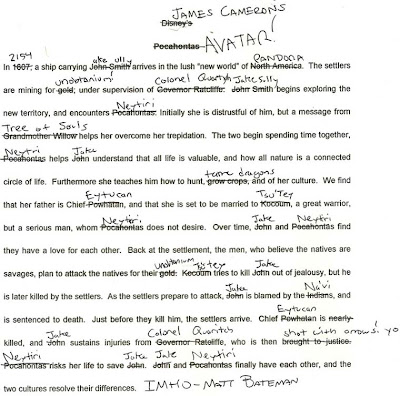 JAMES CAMERONS
Disney's
Pocahontas AVATAR!
2154 jake sully PANDORA
In 1607, a ship carrying John Smith arrives in the lush "new world" of North America. The settlers
unobtanium! Colonel Quartch Jake Sully
are mining for gold, under supervision of Governor Ratcliffe. John Smith begins exploring the
Neytiri
new territory, and encounters Pocahontas. Initially she is distrustful of him, but a message from
Tree of Souls
Grandmother Willow helps her overcome her trepidation. The two begin spending time together,
Neytiri Jake
Pocahontas helps John understand that all life is valuable, and how all nature is a connected
tame dragons
circle of life. Furthermore she teaches him how to hunt, grow crops, and of her culture. We find
Eytucan Tsu'Tey
that her father is Chief Powhatan, and that she is set to be married to Kocoum, a great warrior,
Neytiri Jake Neytiri
but a serious man, whom Pocahontas does not desire. Over time, John and Pocahontas find
they have a love for each other. Back at the settlement, the men, who believe the natives are
unobtanium Tsu'tey Jake
savages, plan to attack the natives for their gold. Kocoum tries to kill John out of jealousy, but he
Jake Na'vi
is later killed by the settlers. As the settlers prepare to attack, John is blamed by the Indians, and
Eytucan
is sentenced to death. Just before they kill him, the settlers arrive. Chief Powhatan is nearly
Jake Colonel Quaritch shot with arrows! yo
killed, and John sustains injuries from Governor Ratcliffe, who is then brought to justice.
Neytiri Jake Jake Neytiri
Pocahontas risks her life to save John. John and Pocahontas finally have each other, and the
two cultures resolve their differences. IMHO - MATT BATEMAN